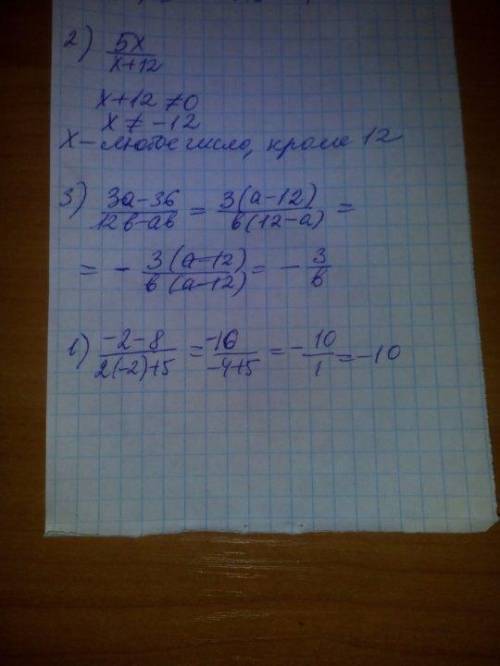 2) 5x/(x+12)
x+12≠0
x≠-12
x - любое число, кроме 12
3) (3a-36)/(12в-aв) = 3(a-12)/в(12-a) =
= - 3(a-12)/в(a-12) = - 3/в
1) (-2-8)/(2(-2)+5) = -10/(-4+5) = - 10/1 = -10